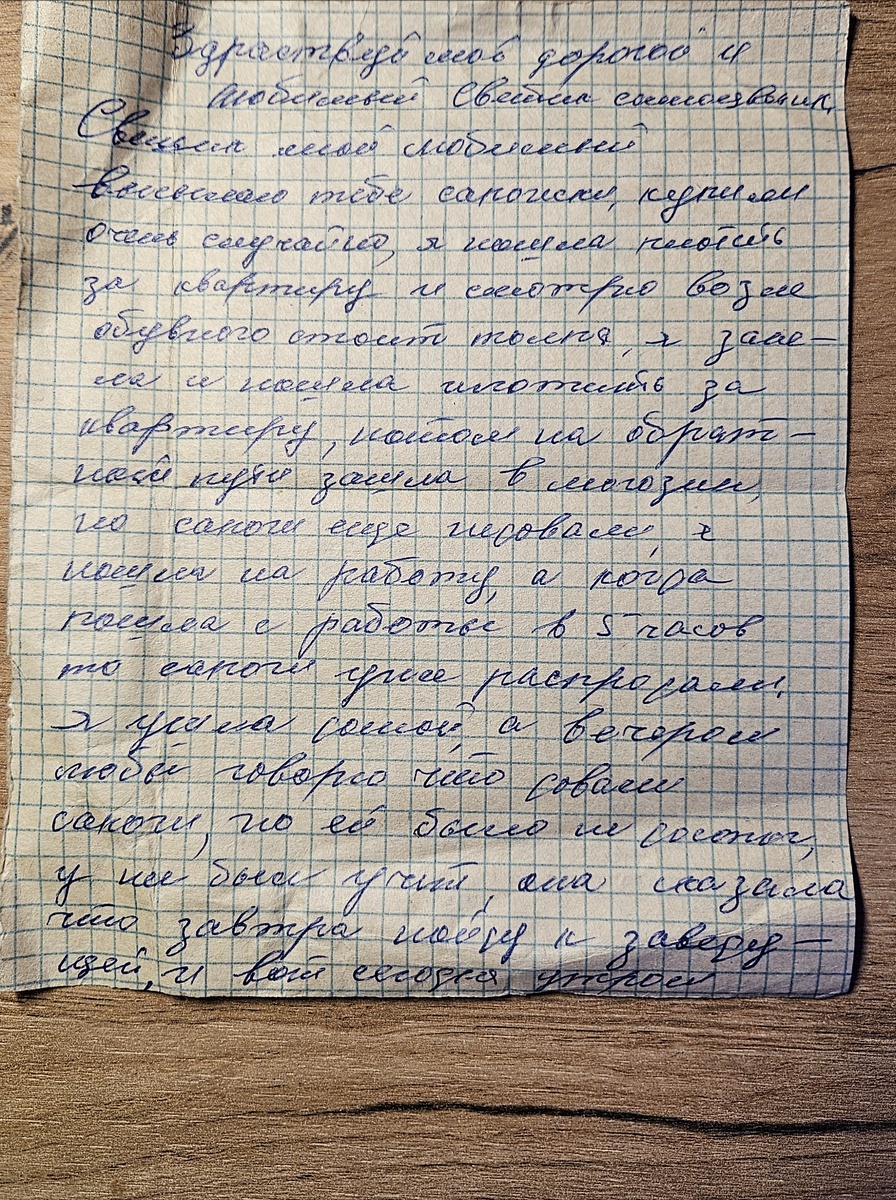 Здраствуй мой дорогой и
любимый Светик самоцветик,
Светик мой любимый
высылаю тебе сапожки, купили
очень случайно, я пошла плотить
за квартиру и смотрю возле
обувного стоит толпа, я заня-
ла и пошла плотить за
квартиру, потом на обрат-
ной пути зашла в могозин,
но сапоги еще недовали, я
пошла на работу, а когда
пошла с работы в 5 часов
то сапоги уже распродали,
я ушла домой, а вечером
любы говорю что довали
сапоги, но ей было не до сапог,
у ни был учит, она сказала
что завтра пойду к заведу-
щей, и вот сегодня утром